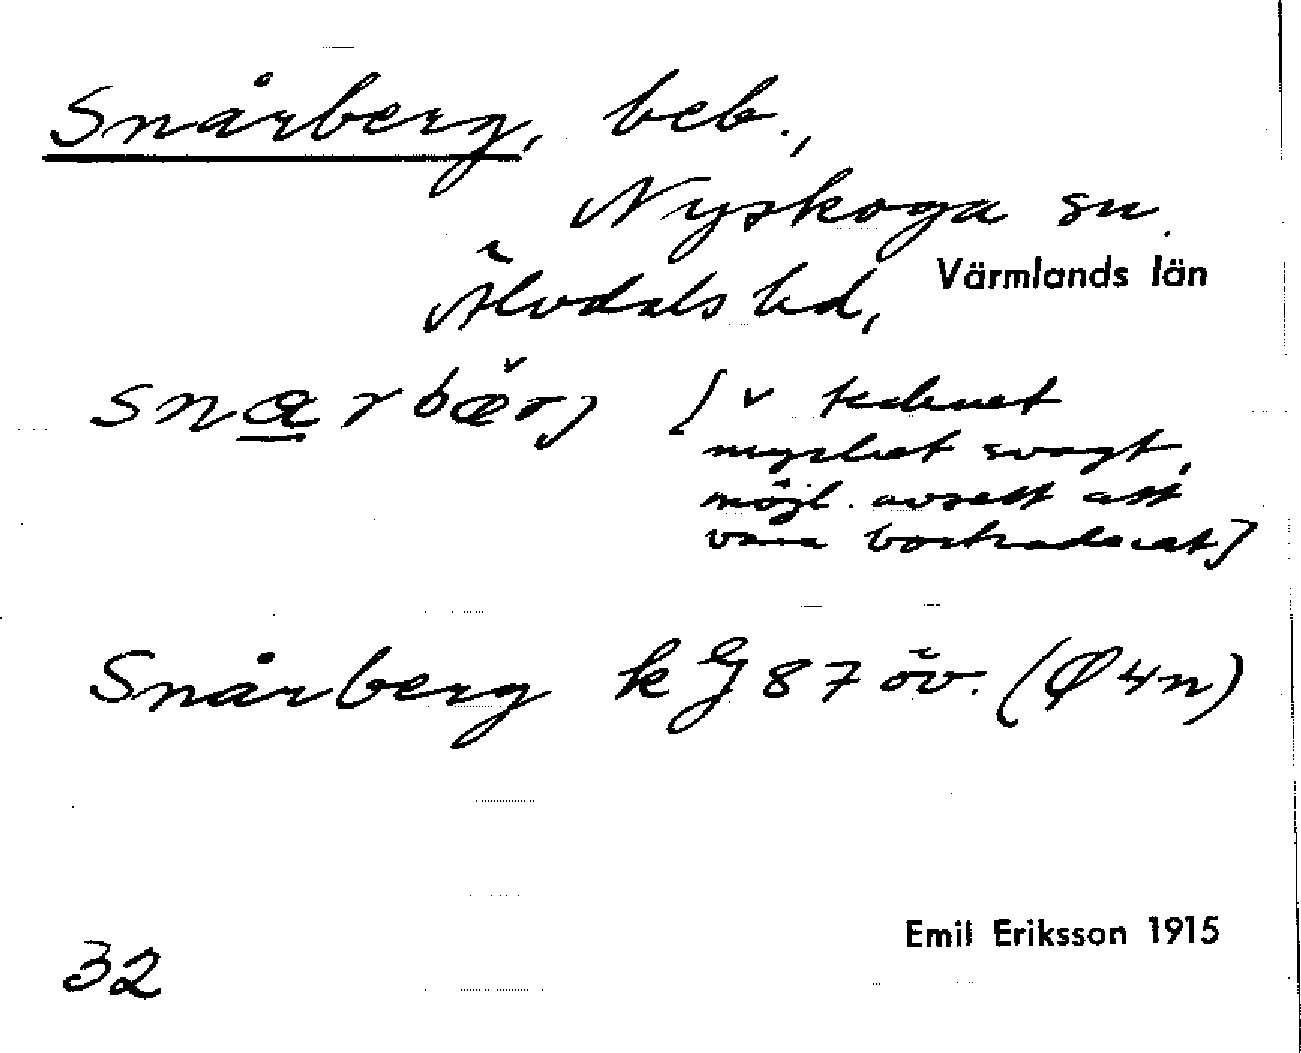 Snårberg, beb.,
Nyskoga sn.
Älvdals hd,
Värmlands län
snarbærj [v tecknet
mycket svagt,
möjl. avsett att
vara bortraderat]
Snårberg kG 87 öv. (Ø4n)
Emil Eriksson 1915
32